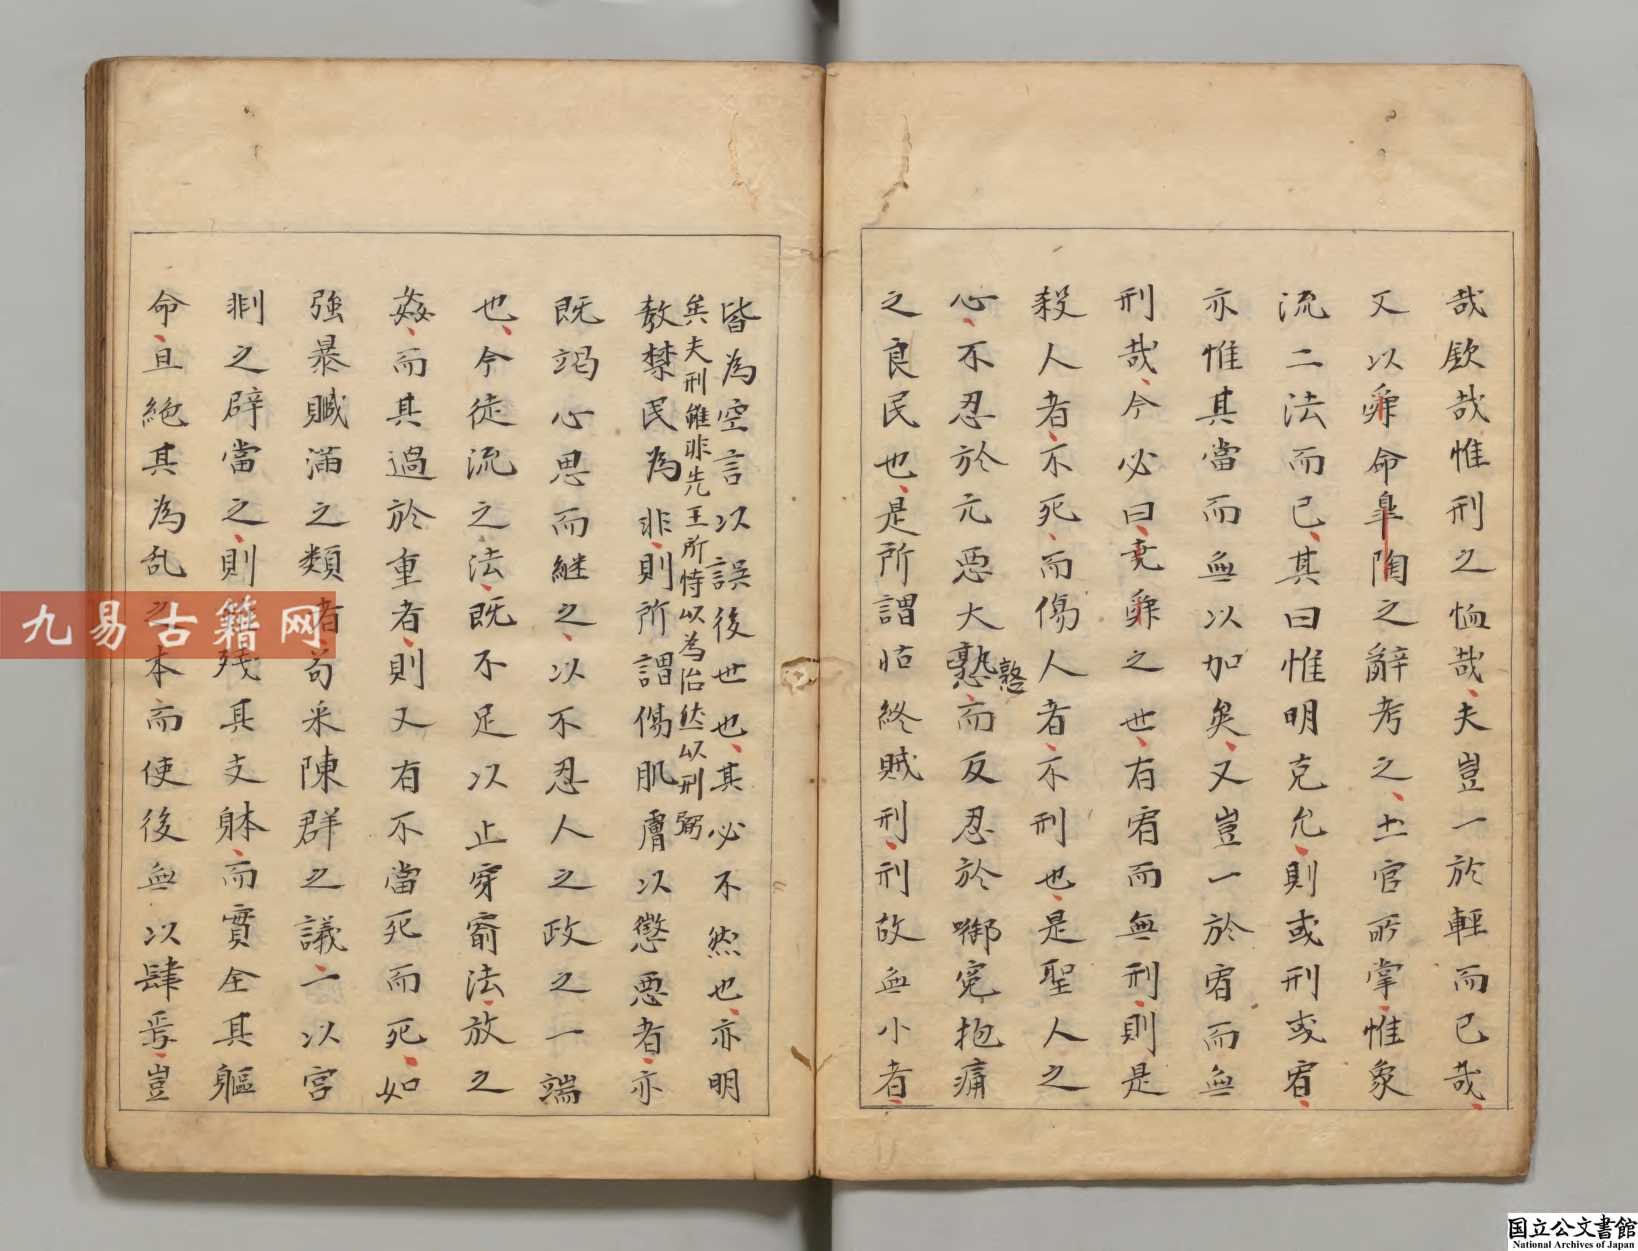 哉欽哉惟刑之恤哉夫豈一於輕而已哉
又以舜命皐陶之辭考之士官所掌惟象
流二法而已其曰惟明克允則或刑或宥
亦惟其當而無以加矣又豈一於宥而無
刑哉今必曰堯舜之世有宥而無刑則是
殺人者不死而傷人者不刑也是聖人之
心不忍於元惡大憝而反忍於啣冤抱痛
憝
之良民也是所謂怙終賊刑刑故無小者
皆為空言以誤後世也其必不然也亦明
矣夫刑雖非先王所恃以為治然以刑弼
教禁民為非則所謂傷肌膚以懲惡者亦
既竭心思而継之以不忍人之政之一端
也今徒流之法既不足以止穿窬法放之
姦而其過於重者則又有不當死而死如
強暴贓滿之類者苟采陳群之議一以宮
剕之辟當之則殘其支躰而實全其軀
命且絶其為乱之本而使後無以肆焉豈
九易古籍网
国立公文書館
National Archives of Japan